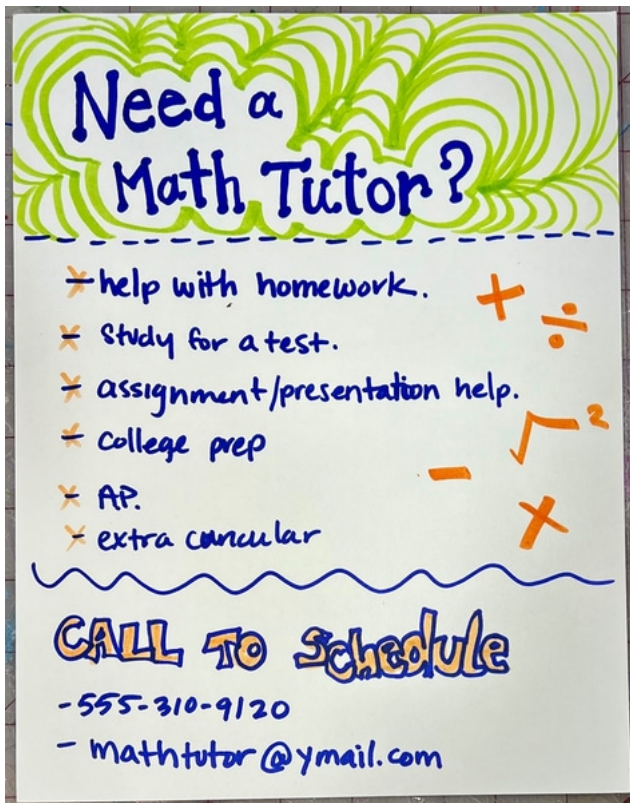 Need a
Math Tutor?
- help with homework.
- Study for a test.
- assignment/presentation help.
- college prep
- AP.
- extra curricular
+ ÷
- √ 2
×
CALL TO Schedule
-555-310-9120
- mathtutor@ymail.com